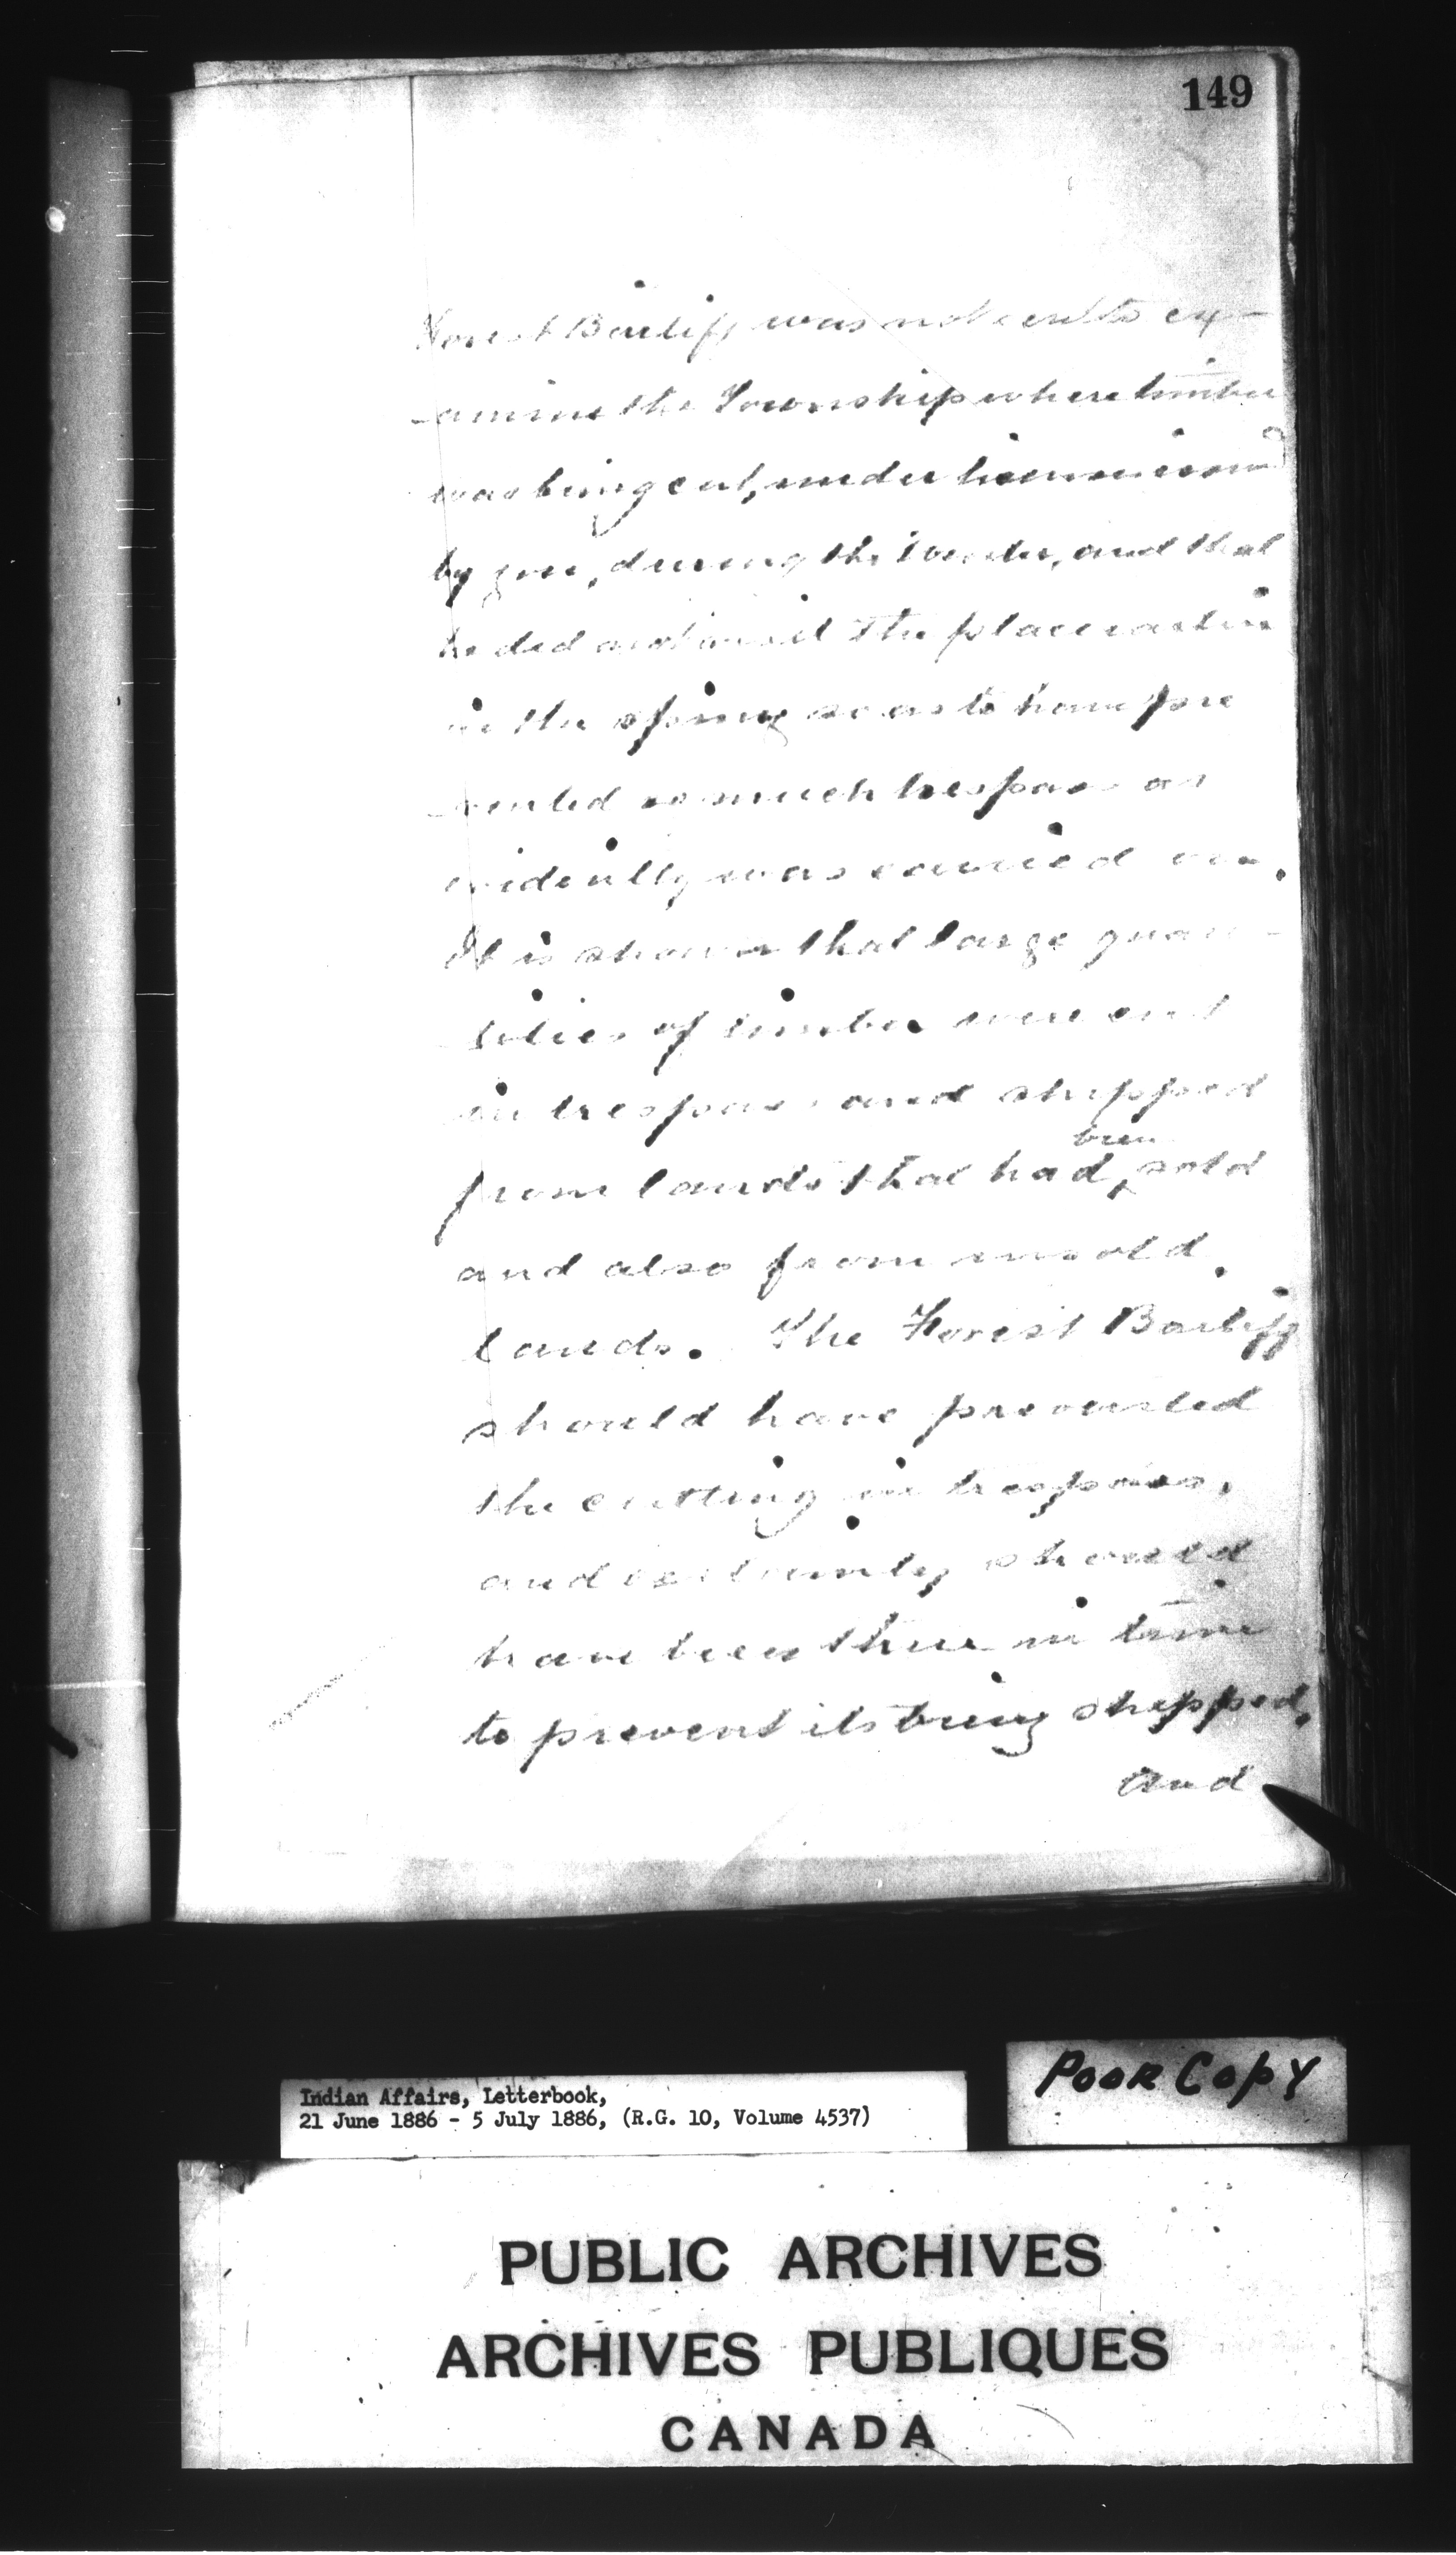 149
Forest Bailiff was not sent to ex-
-amine the Township where timber
was being cut, under license issued
by you, during the Winter, and that
he did not visit the place earlier
in the spring so as to have pre
-vented so much trespass as
evidently was carried on.
It is shown that large quan-
-tities of timber were cut
in trespass and shipped
been
from lands that had sold
and also from unsold
lands. The Forest Bailiff
should have prevented
the cutting in trespass,
and certainly should
have been there in time
to prevent its being shipped,
and
Poor Copy
Indian Affairs, Letterbook,
21 June 1886 - 5 July 1886, (R.G. 10, Volume 4537)
PUBLIC ARCHIVES
ARCHIVES PUBLIQUES
CANADA